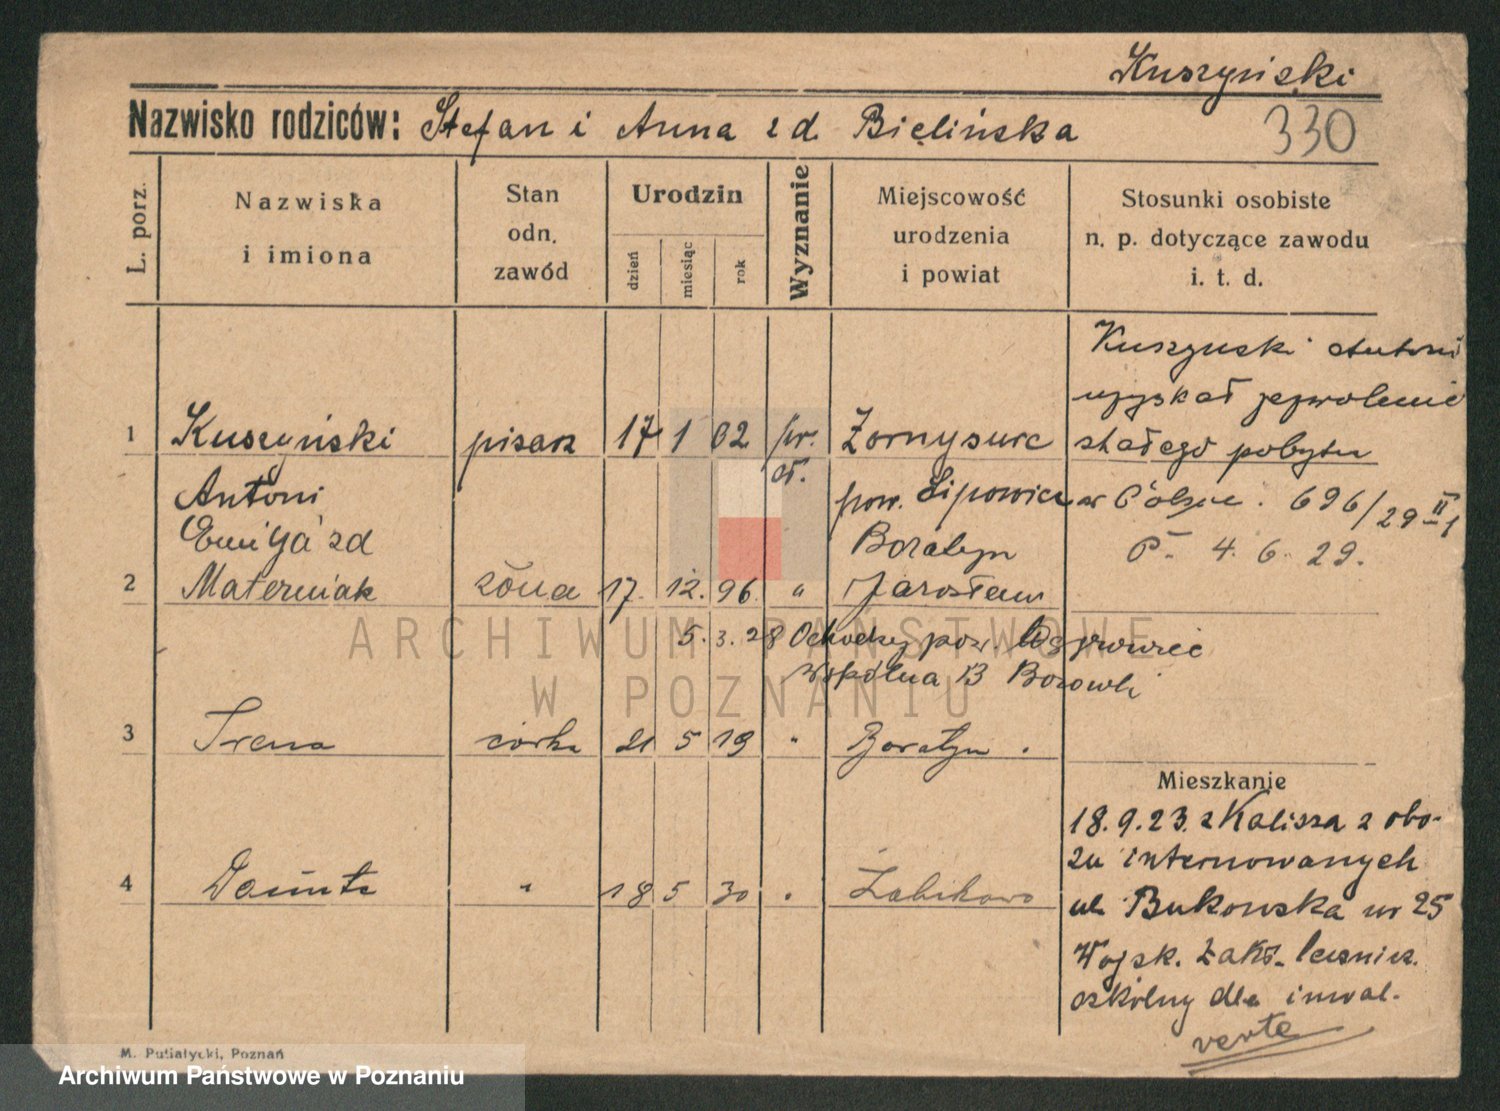 Kuszyński
Nazwisko rodziców: Stefan i Anna zd Bielińska
330
L. porz.
Nazwiska
i imiona
Stan
odn.
zawód
Urodzin
dzień
miesiąc
rok
Wyznanie
Miejscowość
urodzenia
i powiat
Stosunki osobiste
n. p. dotyczące zawodu
i. t. d.
1 Kuszyński pisarz 17 1 02 pr.
Antoni
pow. Lipowiec
Boratyn
zd
2 Materniak żona 17. 12. 96 "
Kuszyński Antoni
uzyskał zezwolenie
stałego pobytu
w Polsce. 696/29 II
P. 4. 6. 29.
5. 3. 28 pow.
Wspólna 13
3 Irena córka 21 5 19 " Boratyn.
4 Danuta " 18 5 30 " Żabikowo
Mieszkanie
18. 9. 23. z Kalisza z obo-
zu internowanych
ul. Bukowska nr 25
Wojsk. Zakł. lecznicz.
szkolny dla inwal.
verte
M. Putiatycki, Poznań
ARCHIWUM PAŃSTWOWE
W POZNANIU
Archiwum Państwowe w Poznaniu